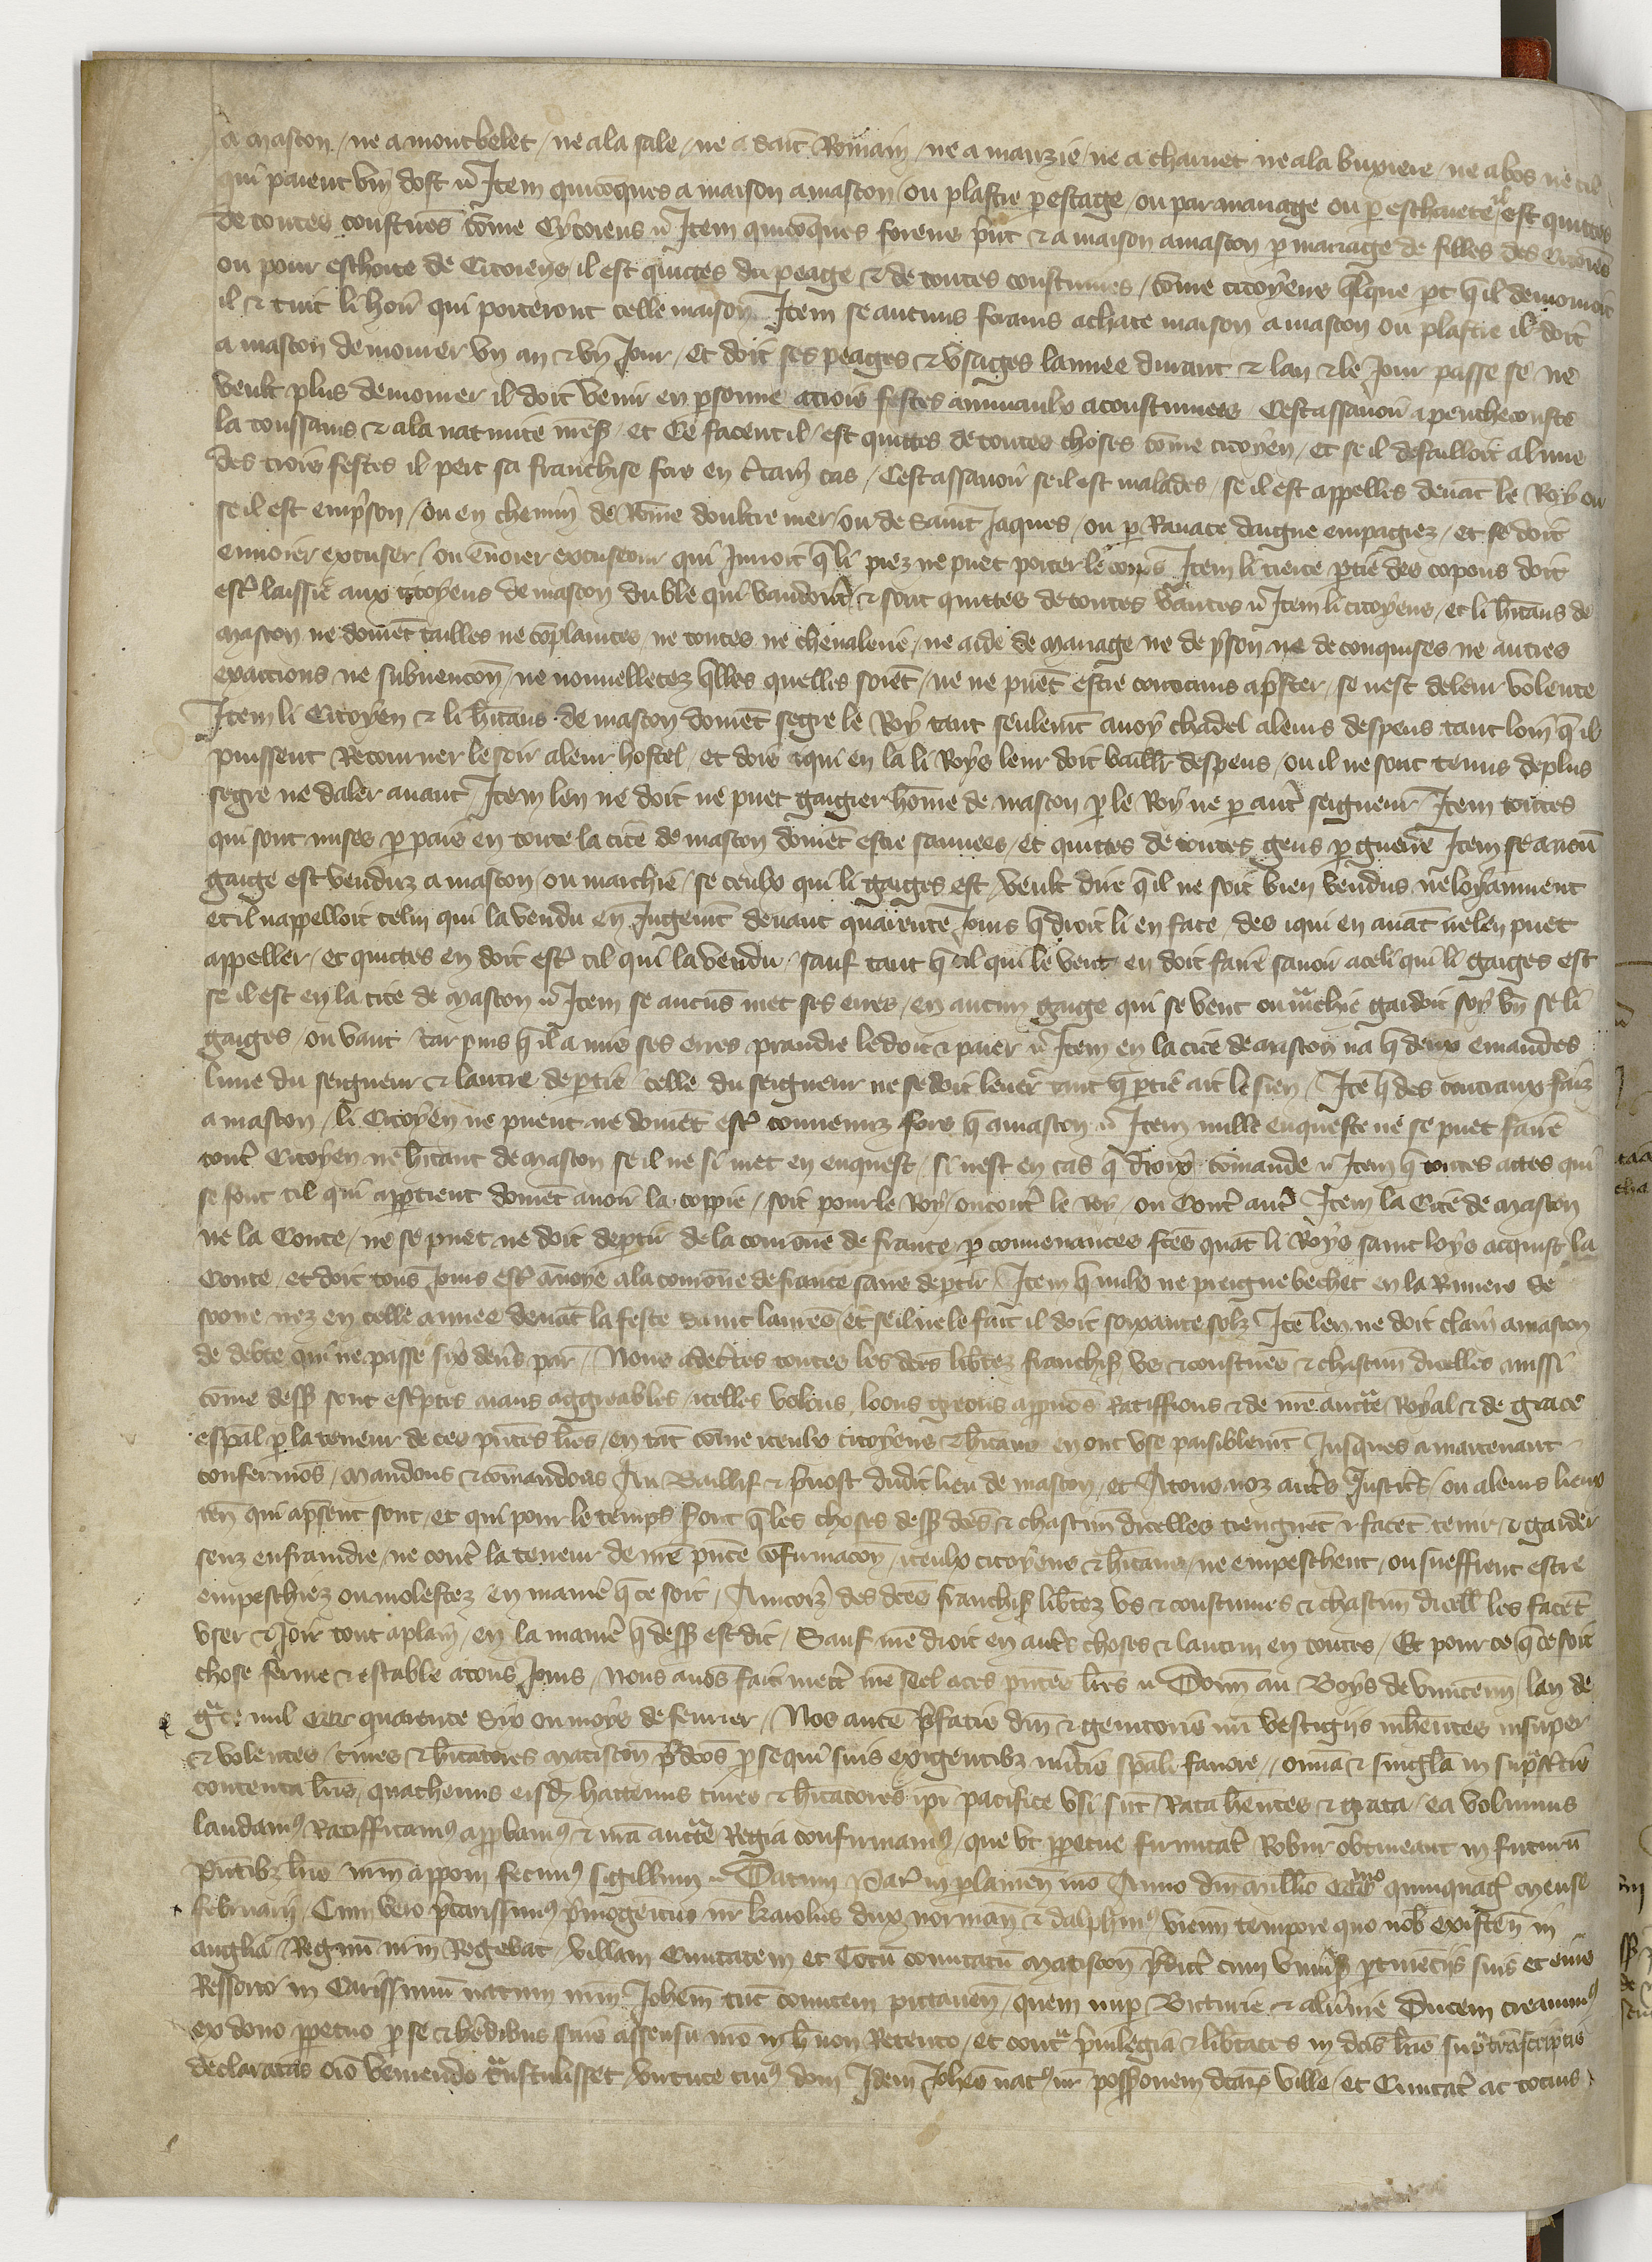 a mascon / ne a montbelet / ne a la sale / ne a saīt Romain / ne a marizie / ne a charnet ne a la buxiere / ne a bos ne cil
qui paient vin dost Item quicōques a maison a mascon / ou plastre p estage / ou par mariage ou p escheuete il est quittes
de toutes coustūes cōme Cytoiens Item quicōques forens prēt & a maison a mascon p mariage de filles des Citoiēs
ou pour eschoite de Citoiens / il est quittes du peage & de toutes coustumes / cōme citoyens q̄lque pt q̄ il demouroit
il & tuit li hoir qui porteront celle maison Item se aucuns forains achate maison a mascon ou plastre il doit
a mascon demourer vn an & vn Jour / Et doit ses peages & vsages lannee durant & lan & le Jour passe se ne
veult plus demourer il doit venir en psonne a trois festes annuaulx acoustumees Cest assauoir a penthecouste
la toussains & a la natiuite / et Ce facent il / est quittes de toutes choses cōme citoyen / et se il defailloit a lune
des trois festes il pert sa franchise fors en c̄tain cas / Cest assauoir se il est malades / se il est appelles deuāt le Roy ou
se il est empson / ou en chemin de Rōme doultre mer / ou de saint Jaques / ou p Rauace daigue empagiez / et se doit
enuoier excuser / ou ēuoier excuseour qui Juroit q̄ li piez ne puet porter le corps Item li tierce ptie des copons doit
estr̄ laissie aux citoyens de mascon du ble qui vandront & sont quittes de toutes vantes Item li citoyens / et li hītans de
Mascon ne doiuēt tailles ne cōplaintes / ne toutes ne cheualerie / ne aide de Mariage ne de pson ne de conquises ne autres
exaccions ne subuencōn / ne nouelletez q̄lles quelles soiēt / ne ne puēt estre contrains a pster / se nest de leur volente
Item li Citoyen & li hītans de mascon doiuēt segre le Roy tant seulemt auoy chadel a leurs despens tant loin q̄ il
puissent Retourner le soir a leur hostel / et dois iqui en la li Roys leur doit baillr̄ despens / ou il ne sont tenus de plus
segre ne daler auant Item len ne doit ne puet gaigier hōme de mascon p le Roy ne p autr̄ seigneur Item toutes
qui sont mises p pais en toute la cite de mascon doiuēt estre sauuees / et quittes de toutes gens p guerre Item se aucū
gaige est venduz a mascon / ou marchie / se ceulx qui li gaiges est / veult dire q̄ il ne soit bien vendus ne loyaument
et il nappelloit celui qui la vendu en Jugemt deuant quarente Jours q̄ droit li en face / des iqui en auāt ne len puet
appeller / et quittes en doit estr̄ cil qui la vendu / sauf tant q̄ cil qui le vent en doit faire sauoir a celi qui li gaiges est
se il est en la cite de Mascon Item se aucūs met ses erres / en aucun gaige qui se vent ou mchie gardoit soy bn se li
gaiges / ou vaut car puis q̄ il a mis ses erres prandre le doit & paier Item en la cite de mascon na q̄ deux emandes
lune du seigneur & lautre de ptie celle du seigneur ne se doit leuer tant q̄ ptie ait le sien / Itē q̄ des contraux faiz
a mascon / li Citoyen ne puent ne doiuēt estr̄ conuenuz fors q̄ a mascon Item nulle enqueste ne se puet faire
contr̄ Citoyen ne hītant de mascon se il ne si met en enquest / si nest en cas q̄ droiz cōmande Item q̄ toutes actes qui
se font cil qui appartient doiuēt auoir la coppie / soit pour le Roy / ou contr̄ le Roy / ou Contr̄ autr̄ Item la Cite de Mascon
ne la Conte / ne se puet ne doit deptir de la corone de france / p conuenances fces quāt li Roys saint loys acquist la
Conte / et doit tous Jours estr̄ ānoye a la corone de france sans deptir / Item q̄ nulx ne preigne bechet en la Riuiere de
soone nez en celle annee deuāt la feste saint laurēs / et se il ne le fait il doit soyxante solz Itē len ne doit clain a mascon
de debte qui ne passe six dens par Nous adecc̄tes toutes les dces libtez franchis̄ vs & coustūes & chascun dicelles aussi
cōme dessꝰ sont escptes aians aggreables / icelles volons loons greons appuōs Ratiffions & de nrē auctte Royal & de grace
espal p la teneur de ces pntes lrēs / en tāt cōme iceulx citoyens & hītans en ont vse paisiblemt Jusques a maitenant
confermōs / Mandons & cōmandons Au Baillif & puost dudit lieu de mascon / et A tous noz autr̄s Justic̄s / ou a leurs lieux
ten̄ qui apsent sont / et qui pour le temps sront q̄ les choses dessꝰ dces & chascun dicelles tiengnēt & facēt tenir & garder
senz enfraindre / ne contr̄ la teneur de nrē pnte cōfirmacōn / iceulx citoyens & hītans / ne empeschent / ou sueffrent estre
empeschiez ou molestez en manie q̄ ce soit / Aincois des dces franchis̄ libtez vs & coustumes & chascun dicell les facēt
vser & Joir tout a plain / en la manie q̄ dessꝰ est dit / Sauf nrē droit en autr̄s choses & lautrui en toutes / Et pour ce q̄ ce soit
chose ferme & estable a tous Jours / Nous auōs fait mettr̄ nrē seel a ces pntes lrēs Donn̄ au Boys de vincenn̄ / lan de
grace mil CCC quarente Six ou moys de feurier / Nos autē pfatis dni & genitoris nrī vestigijs inhentes insuper
& volentes / ciues & hītatores Matiscon̄ pdcos psequi suis exigentibz mitis spali fauore / omnia & singla in supscptis
contenta lris / quathenus eisdem hattenus ciues & hītatores ipi pacifice vsi sūt / Rata hentes & grata / ea volumus
laudamꝰ Ratifficamꝰ appbamꝰ & nrā aucttē Regia confirmamꝰ / que vt ppetue firmitatē Robur obtineant in futurū
pntibz lris nrm apponi fecimꝰ sigillum Datum Par in plamento nro Anno dni millio CCCmo quinquag mense
februarij Cum vero pcarissimus pmogenitus nr Karolus dux norman̄ & dalphinꝰ vienn̄ tempore quo nob existen̄ in
anglia Regnū nrm Regebat / villam Ciuitatem et Totū comitatū Matiscon̄ pdict cum vniūs ptinēcijs suis et eius
Ressorto in Carissimū natum nrm Johem tūc comitem pictauen̄ / quem nup Bicturie & aluernie Ducem creauimꝰ
ex dono ppetuo p se & hedibus suis assensu nro in h non Retento / et contra priuilegia & libtates in dcis lris supra trāscriptis
declaratas oīo veniendo trāstulisset / virtute cuiꝰ doni Idem Johes natꝰ nr possessionem dcar ville / et Ciuitat ac totius